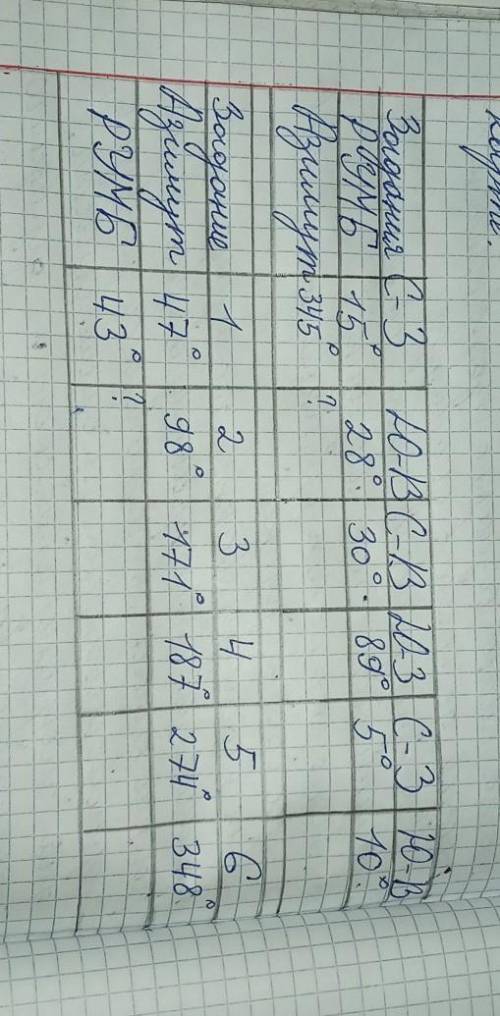 Задания С-З Ю-В С-В Ю-З С-З Ю-В
РУМБ 15° 28° 30° 89° 5° 10°
Азимут 345° ?
Задание 1 2 3 4 5 6
Азимут 47° 98° 171° 187° 274° 348°
РУМБ 43° ?